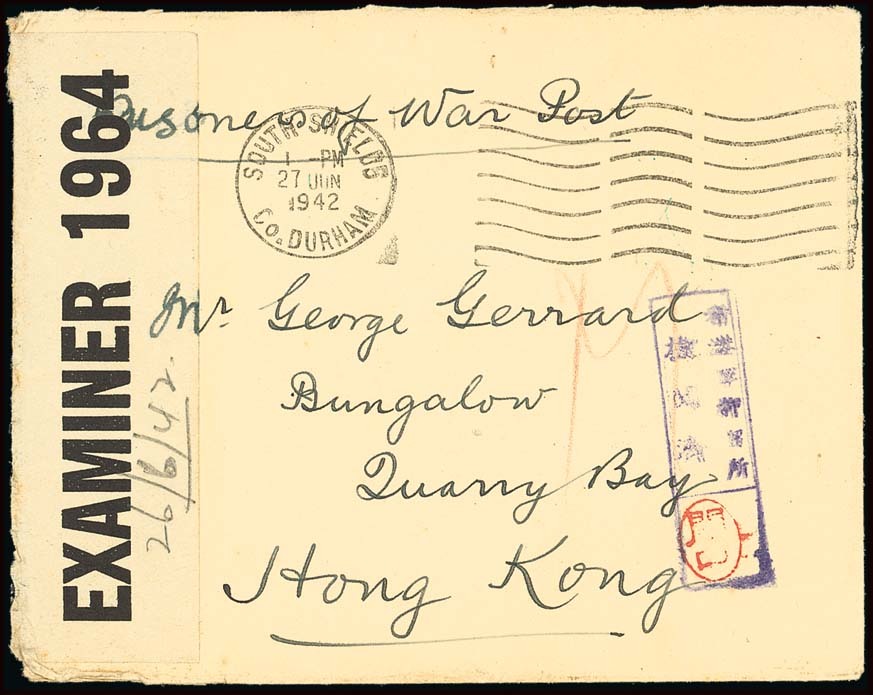 Prisoners of War Post
SOUTH SHIELDS
1 - PM
27 JUN
1942
Co. DURHAM
EXAMINER 1964
26/6/42.
Mr. George Gerrard
Bungalow
Quarry Bay
Hong Kong
香港軍抑留所
檢閲濟